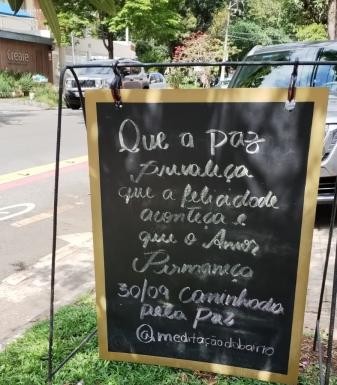 Create
Que a paz
Prevaleça
que a felicidade
aconteça e
que o Amor
Permaneça
30/09 Caminhada
pela Paz
@meditaçãodobairro